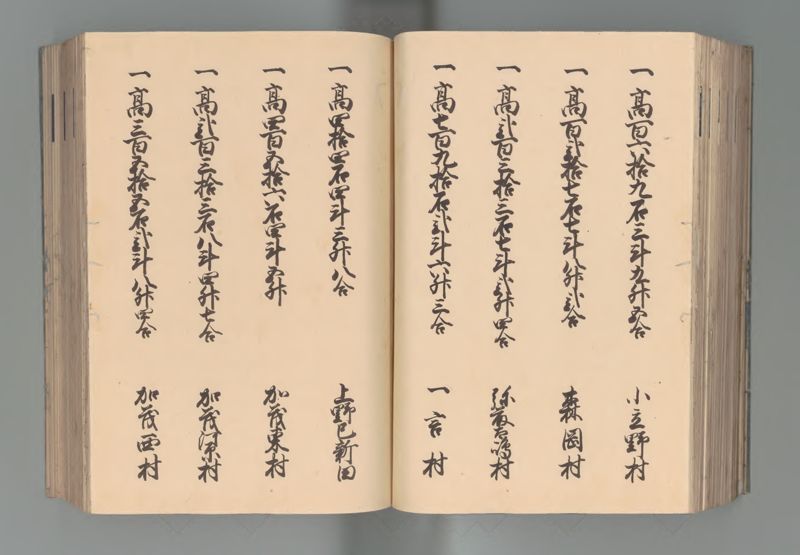 一高百六拾九石三斗九升五合 小立野村
一高百弐拾七石七斗八升弐合 森岡村
一高弐百三拾三石七斗弐升四合 弥藤嶋村
一高七百九拾石弐斗六升三合 一言村
一高四拾四石四斗三升八合 上野巳新田
一高四百五拾六石四斗五升 加茂東村
一高弐百三拾三石八斗四升七合 加茂村
一高三百五拾五石弐斗八升四合 加茂西村